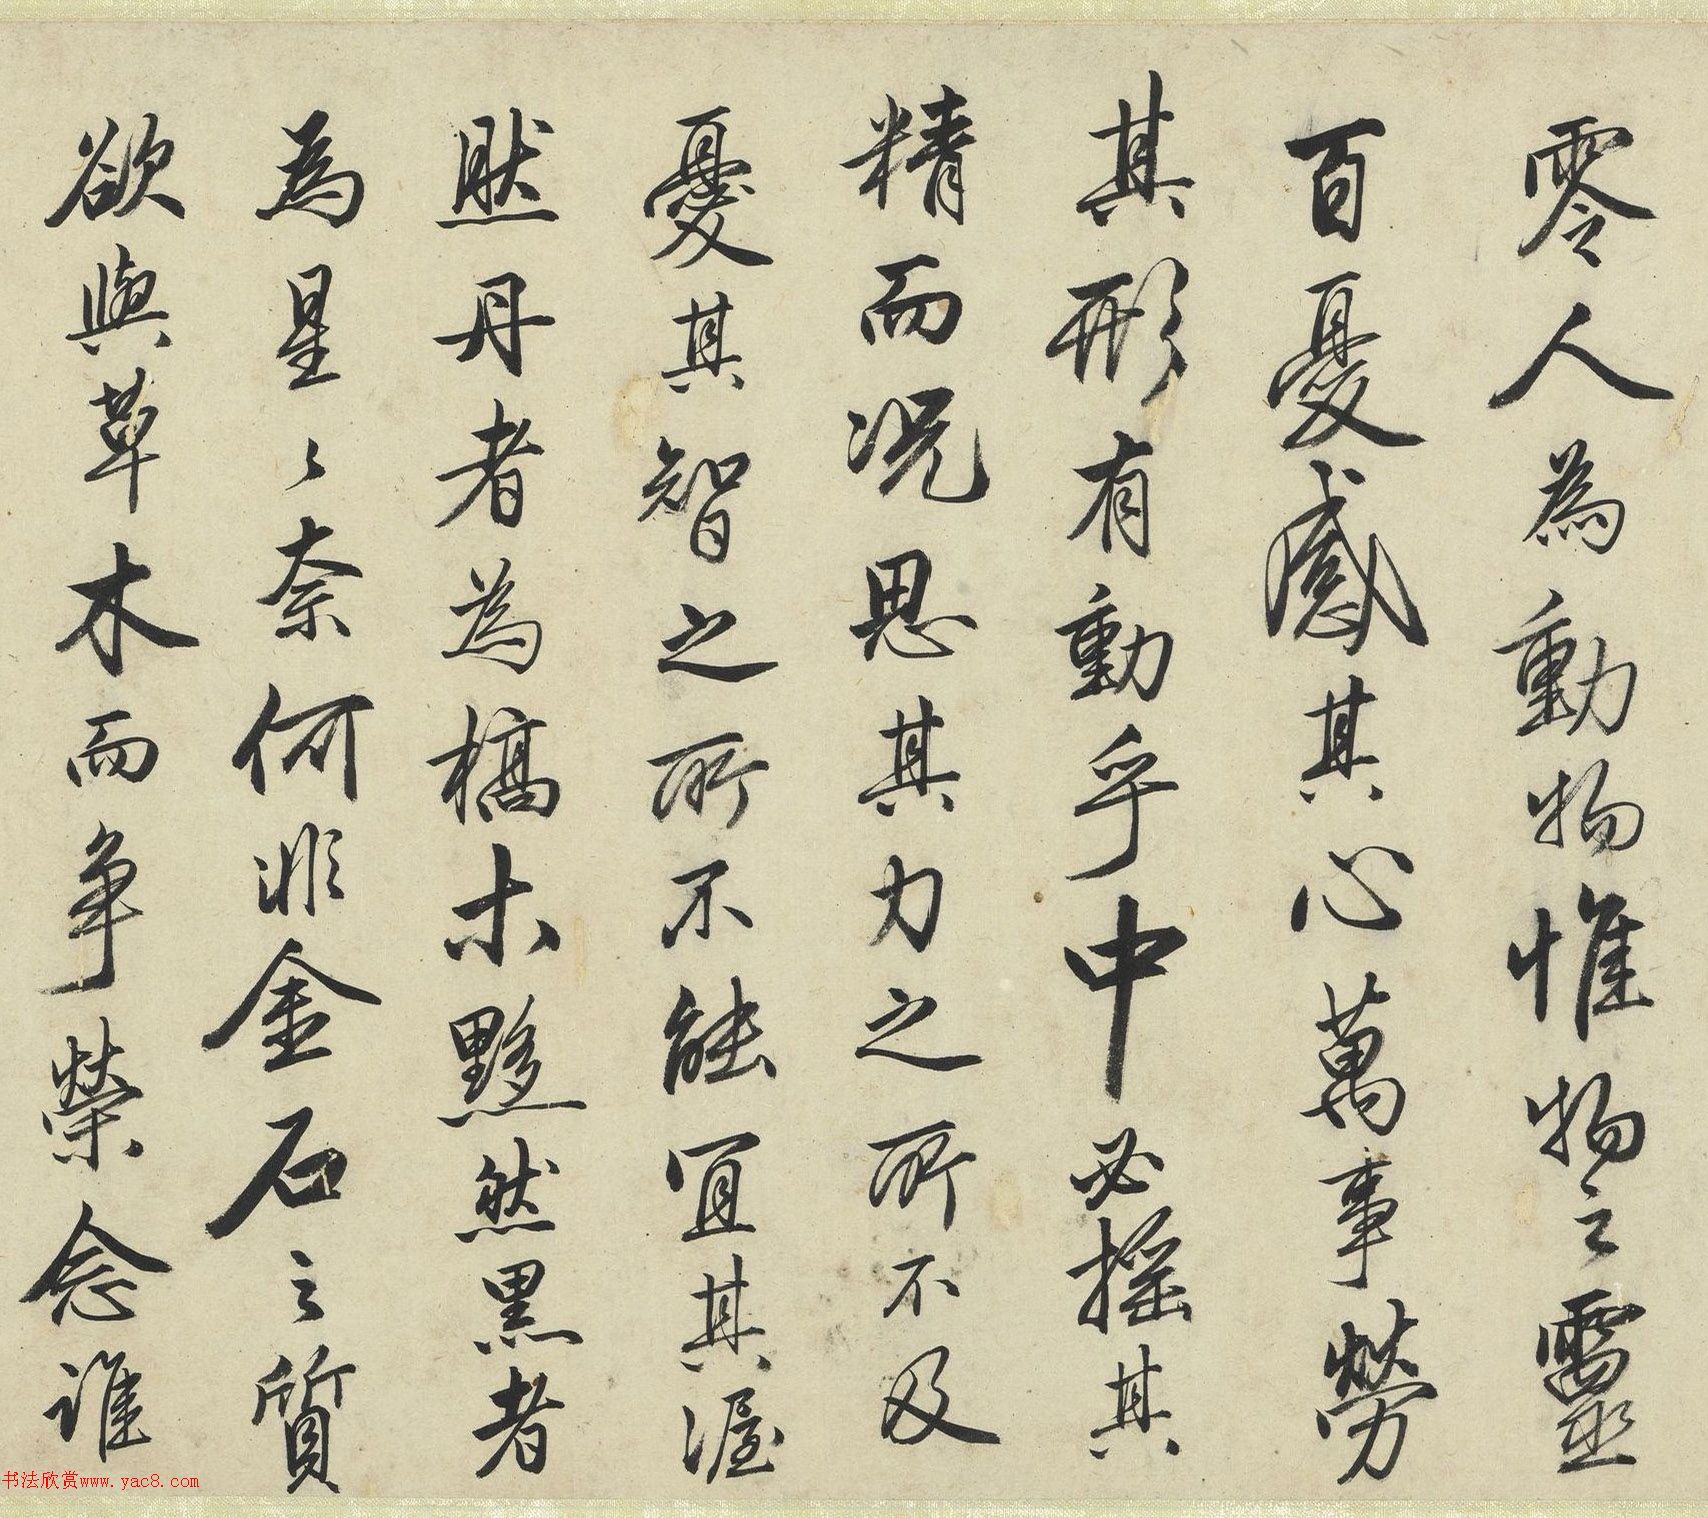 零人為動物惟物之靈
百憂感其心萬事勞
其形有動乎中必搖其
精而況思其力之所不及
憂其智之所不能宜其渥
然丹者為槁木黟然黑者
為星〻奈何非金石之質
欲與草木而爭榮念誰
书法欣赏www.yac8.com